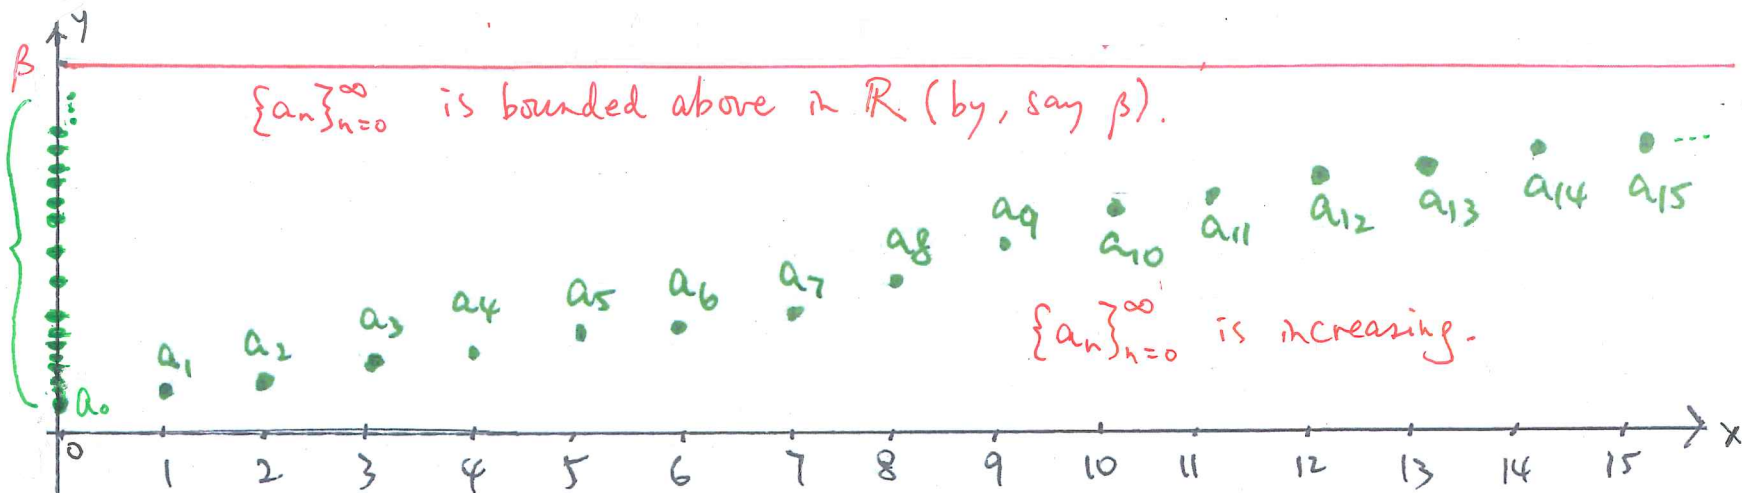 y
β
{aₙ}ₙ₌₀^∞ is bounded above in ℝ (by, say β).
a₀ a₁ a₂ a₃ a₄ a₅ a₆ a₇ a₈ a₉ a₁₀ a₁₁ a₁₂ a₁₃ a₁₄ a₁₅ ....
{aₙ}ₙ₌₀^∞ is increasing.
x
0 1 2 3 4 5 6 7 8 9 10 11 12 13 14 15